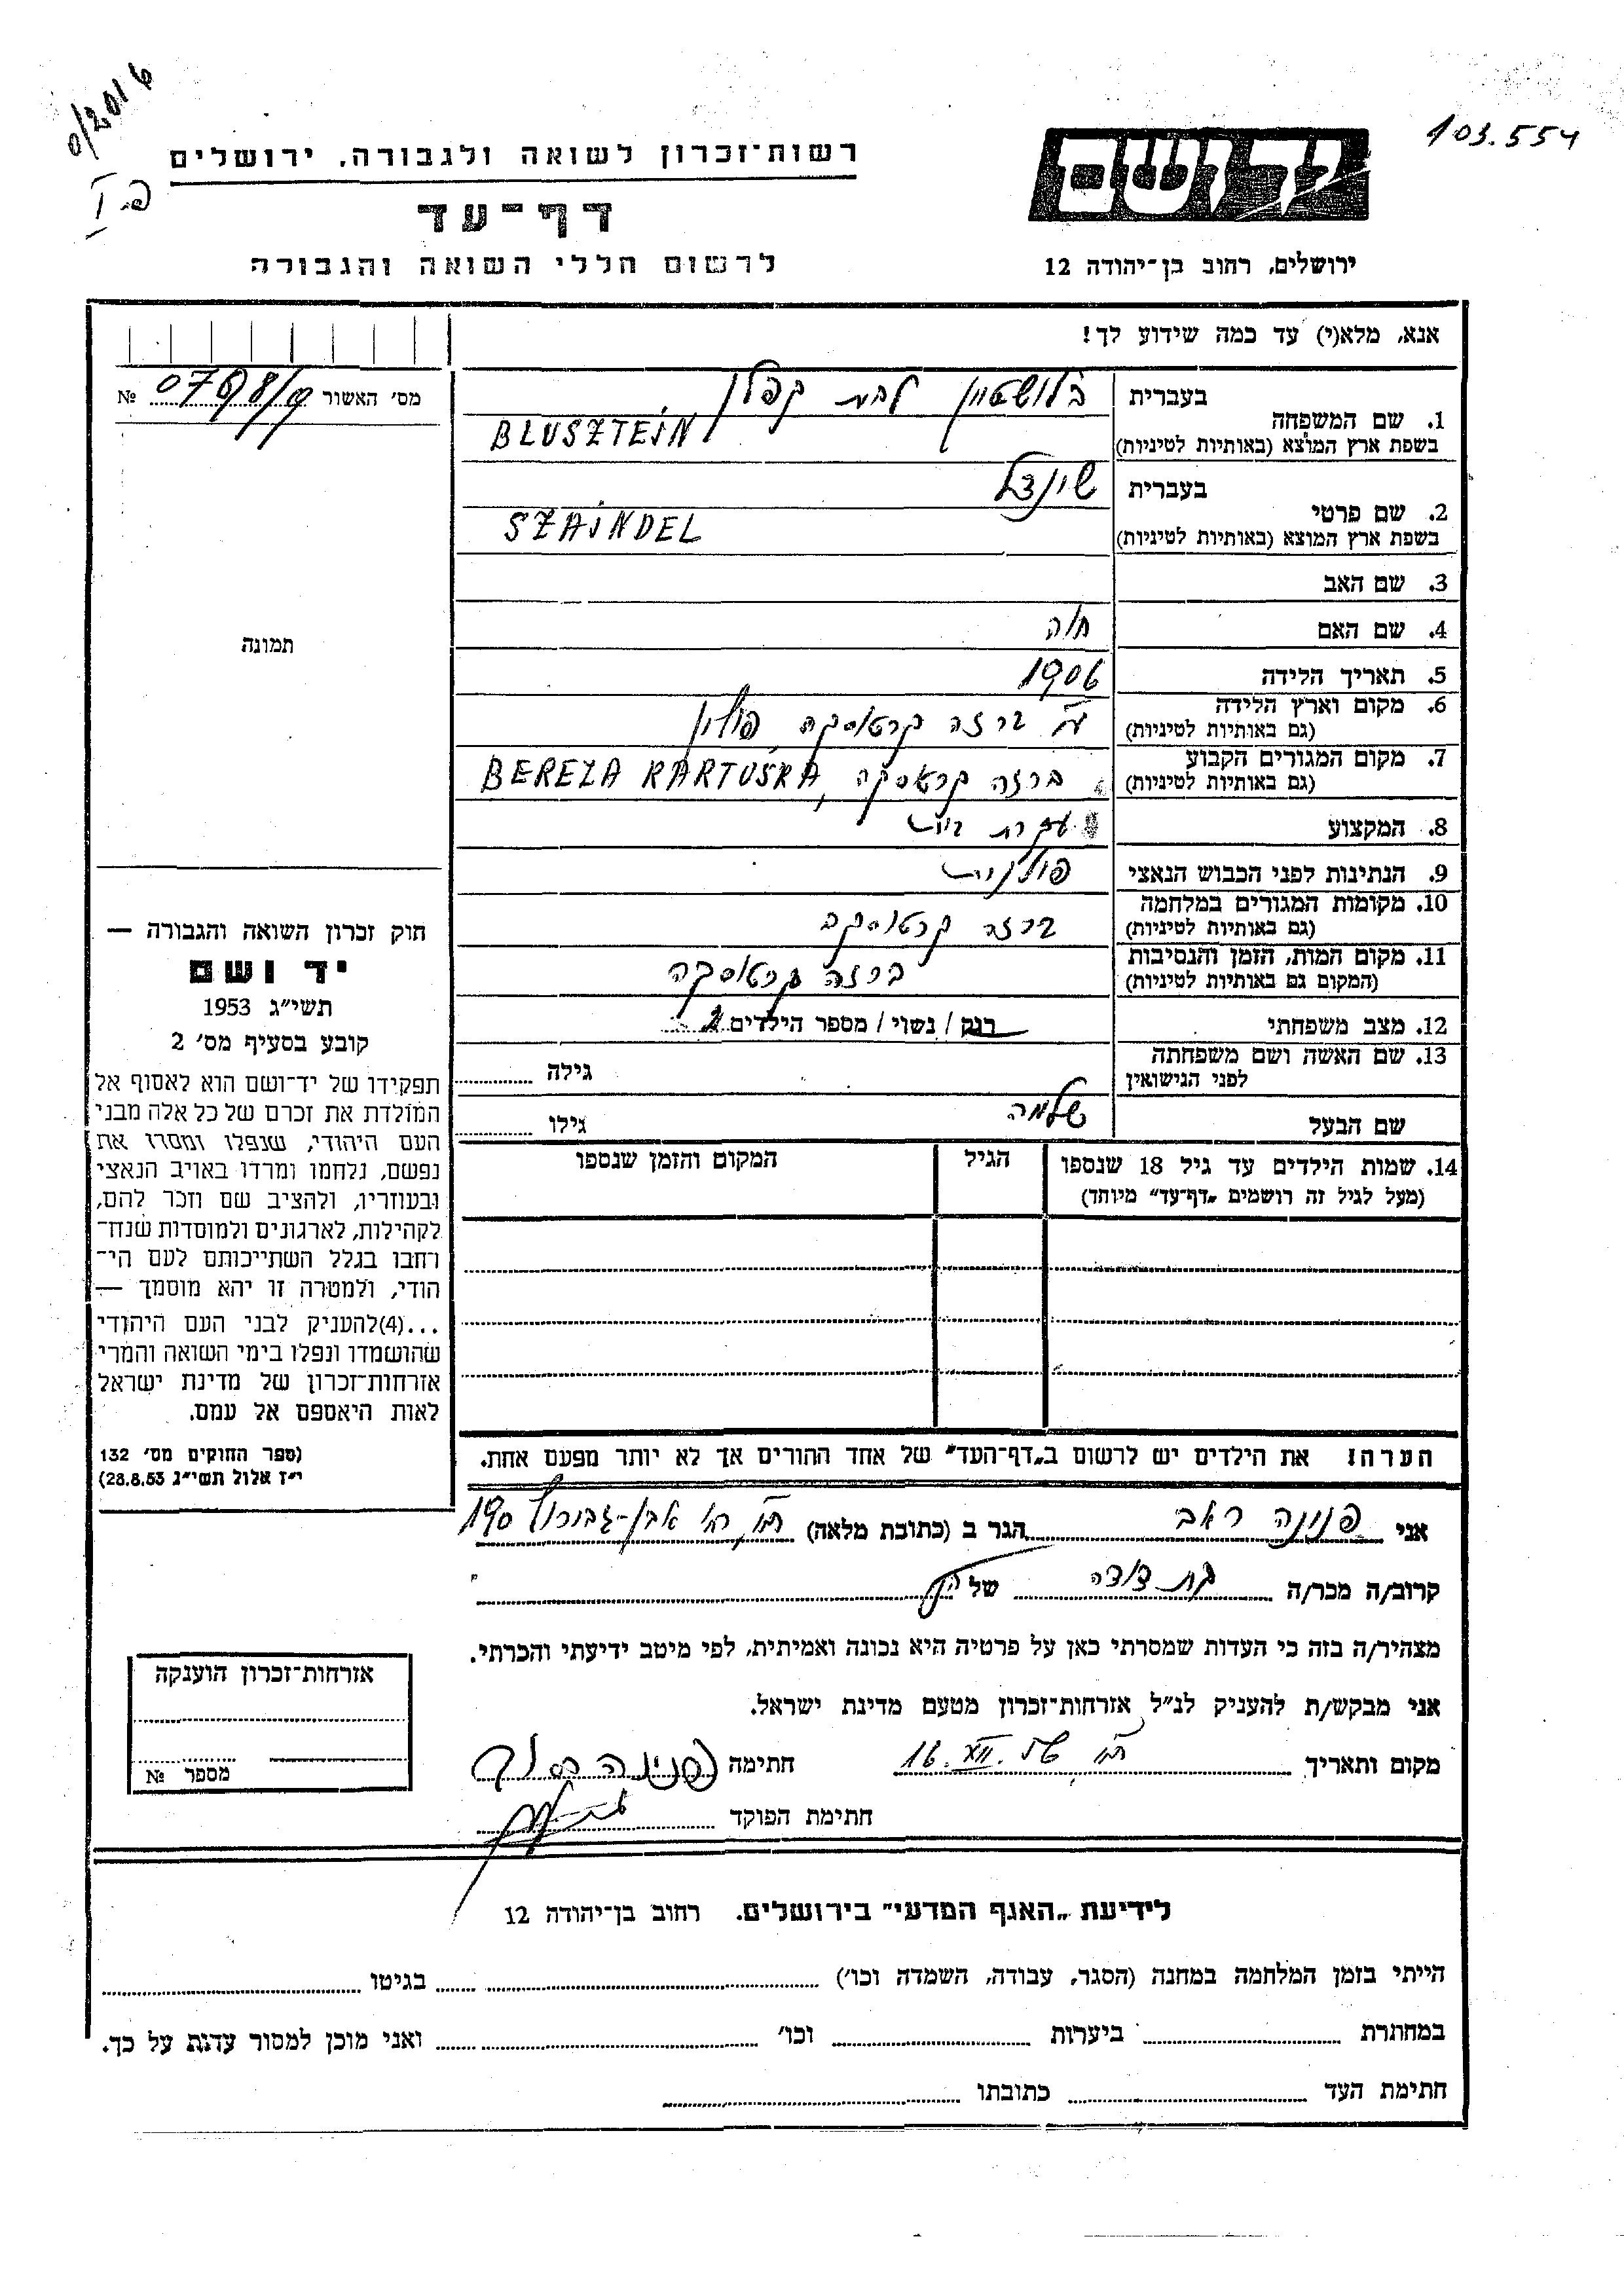 103.554
0/2016
פ. I
יד ושם
ירושלים, רחוב בן־יהודה 12
רשות־זכרון לשואה ולגבורה, ירושלים
דף־עד
לרשום חללי השואה והגבורה
אנא, מלא(י) עד כמה שידוע לך!
1. שם המשפחה בעברית בלושטיין לבית קפלן
בשפת ארץ המוצא (באותיות לטיניות) BLUSZTEJN
2. שם פרטי בעברית שיינדל
בשפת ארץ המוצא (באותיות לטיניות) SZAJNDEL
3. שם האב
4. שם האם חיה
5. תאריך הלידה 1906
6. מקום וארץ הלידה ברזה קרטוסקה פולין
(גם באותיות לטיניות)
7. מקום המגורים הקבוע ברזה קרטוסקה, BEREZA KARTUSKA
(גם באותיות לטיניות)
8. המקצוע עקרת בית
9. הנתינות לפני הכבוש הנאצי פולנית
10. מקומות המגורים במלחמה ברזה קרטוסקה
(גם באותיות לטיניות)
11. מקום המות, הזמן והנסיבות ברזה קרטוסקה
(המקום גם באותיות לטיניות)
12. מצב משפחתי רווק / נשוי / מספר הילדים
13. שם האשה ושם משפחתה גילה
לפני הנישואין
שם הבעל שלמה גילו
14. שמות הילדים עד גיל 18 שנספו הגיל המקום והזמן שנספו
(מעל לגיל זה רושמים „דף־עד” מיוחד)
הערה! את הילדים יש לרשום ב„דף־העד” של אחד ההורים אך לא יותר מפעם אחת.
מס׳ האשור №
תמונה
חוק זכרון השואה והגבורה —
יד ושם
תשי״ג 1953
קובע בסעיף מס׳ 2
תפקידו של יד־ושם הוא לאסוף אל
המולדת את זכרם של כל אלה מבני
העם היהודי, שנפלו ומסרו את
נפשם, נלחמו ומרדו באויב הנאצי
ובעוזריו, ולהציב שם וזכר להם,
לקהילות, לארגונים ולמוסדות שנח־
רחבו בגלל השתייכותם לעם הי־
הודי, ולמטרה זו יהא מוסמך —
...(4)להעניק לבני העם היהודי
שהושמדו ונפלו בימי השואה והמרי
אזרחות־זכרון של מדינת ישראל
לאות היאספם אל עמם.
(ספר החוקים מס׳ 132
י״ז אלול תשי״ג 28.8.53)
אני פנינה ראב הגר ב (כתובת מלאה) אבן־גבירול 190
קרוב/ה מכר/ה בת דודה של
מצהיר/ה בזה כי העדות שמסרתי כאן על פרטיה היא נכונה ואמיתית, לפי מיטב ידיעתי והכרתי.
אני מבקש/ת להעניק לנ״ל אזרחות־זכרון מטעם מדינת ישראל.
מקום ותאריך חתימה
חתימת הפוקד
אזרחות־זכרון הוענקה
מספר №
לידיעת „האגף המדעי” בירושלים. רחוב בן־יהודה 12
הייתי בזמן המלחמה במחנה (הסגר, עבודה, השמדה וכו׳) בגיטו
במחתרת ביערות וכו׳ ואני מוכן למסור עדות על כך.
חתימת העד כתובתו